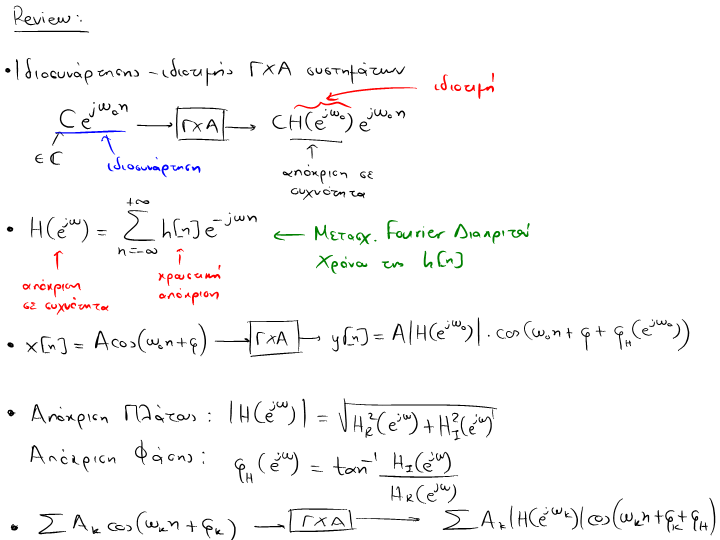 Review:
• Ιδιοσυνάρτησης - ιδιοτιμής ΓΧΑ συστημάτων
ιδιοτιμή
C e^{jω₀n} → ΓΧΑ → C H(e^{jω₀}) e^{jω₀n}
∈ ℂ
ιδιοσυνάρτηση
απόκριση σε
συχνότητα
• H(e^{jω}) = ∑_{n=-∞}^{+∞} h[n] e^{-jωn} ← Μετασχ. Fourier Διακριτού
Χρόνου της h[n]
απόκριση
σε συχνότητα
κρουστική
απόκριση
• x[n] = A cos(ω₀n+φ) → ΓΧΑ → y[n] = A|H(e^{jω₀})| · cos(ω₀n + φ + φ_H(e^{jω₀}))
• Απόκριση Πλάτους: |H(e^{jω})| = √(H_R²(e^{jω}) + H_I²(e^{jω}))
Απόκριση Φάσης: φ_H(e^{jω}) = tan⁻¹ H_I(e^{jω}) / H_R(e^{jω})
• ∑ A_k cos(ω_k n + φ_k) → ΓΧΑ → ∑ A_k |H(e^{jω_k})| cos(ω_k n + φ_k + φ_H)